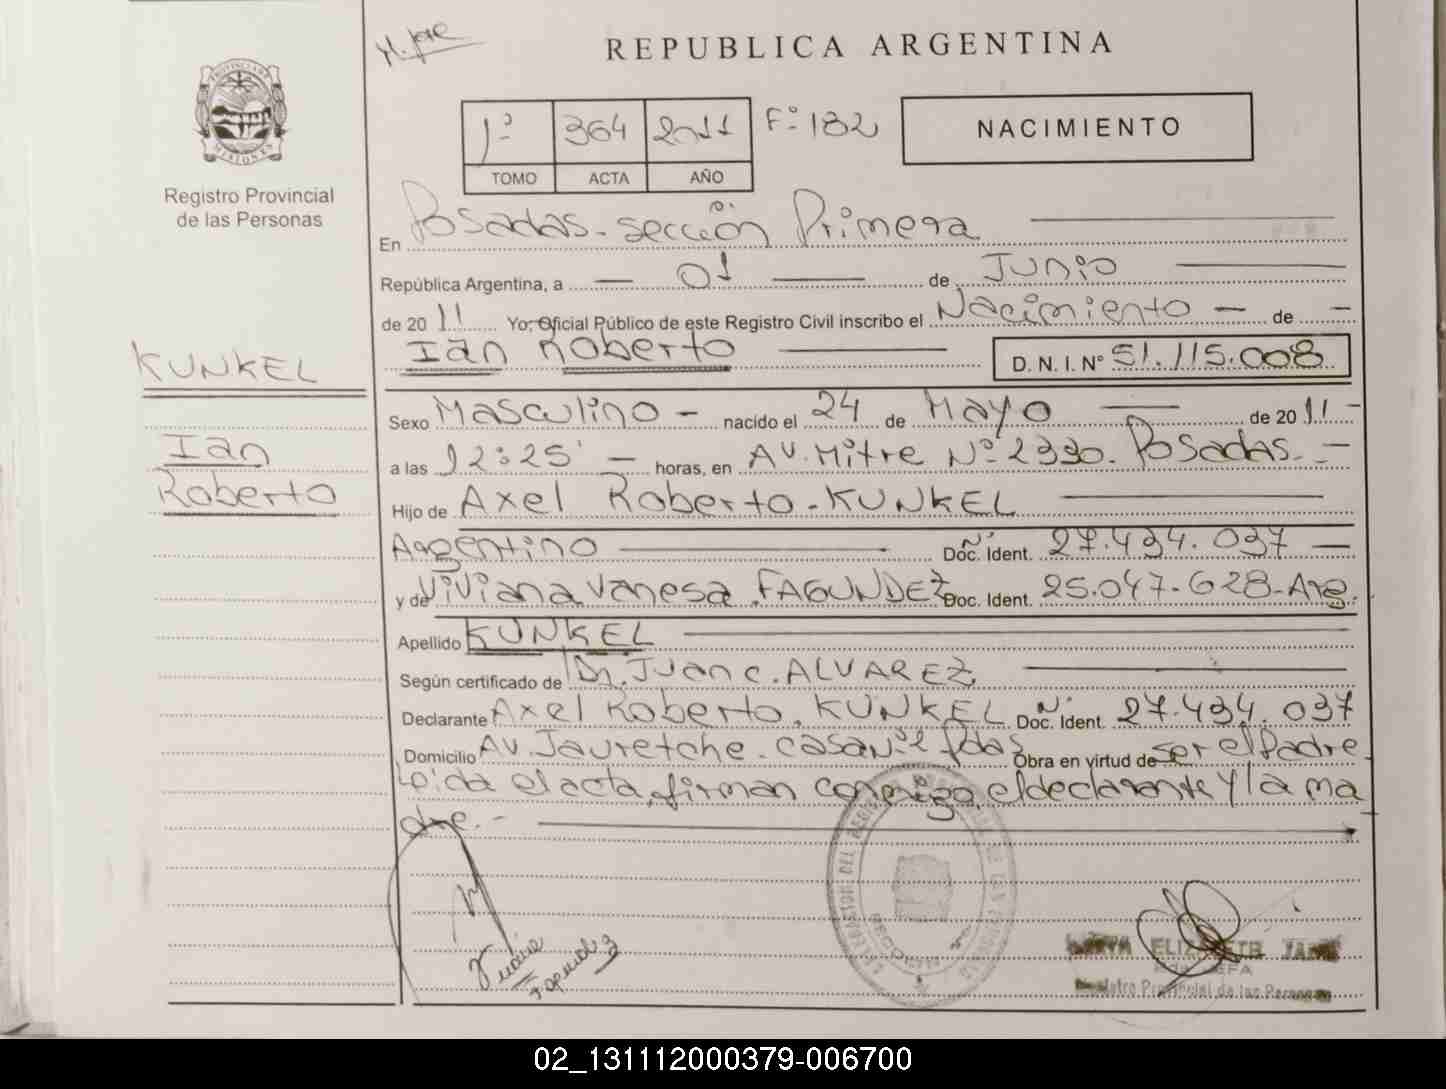 M. José
REPUBLICA ARGENTINA
1º 364 2011 Fº 182
TOMO ACTA AÑO
NACIMIENTO
PROVINCIA DE MISIONES
Registro Provincial
de las Personas
En Posadas - sección Primera
República Argentina, a — 01 — de Junio
de 2011 Yo, Oficial Público de este Registro Civil inscribo el Nacimiento — de —
Ian Roberto — D. N. I. Nº 51.115.008
KUNKEL
Ian
Roberto
Sexo Masculino — nacido el 24 de Mayo — de 2011 —
a las 12:25' — horas, en AV. Mitre Nº 2330. Posadas. —
Hijo de Axel Roberto - KUNKEL
Argentino — Doc. Ident. Nº 27.434.037 —
y de Viviana Vanesa. FAGUNDEZ Doc. Ident. 25.047.628 - Arg.
Apellido KUNKEL
Según certificado de Dr. Juan C. ALVAREZ
Declarante Axel Roberto. KUNKEL Doc. Ident. Nº 27.434.037
Domicilio AV. Jauretche - casa Pdas Obra en virtud de ser el Padre
Leida el acta, firman conmigo, el declarante y la ma
dre. -
ELIZABETH
JEFA
Registro Provincial de las Personas
02_131112000379-006700